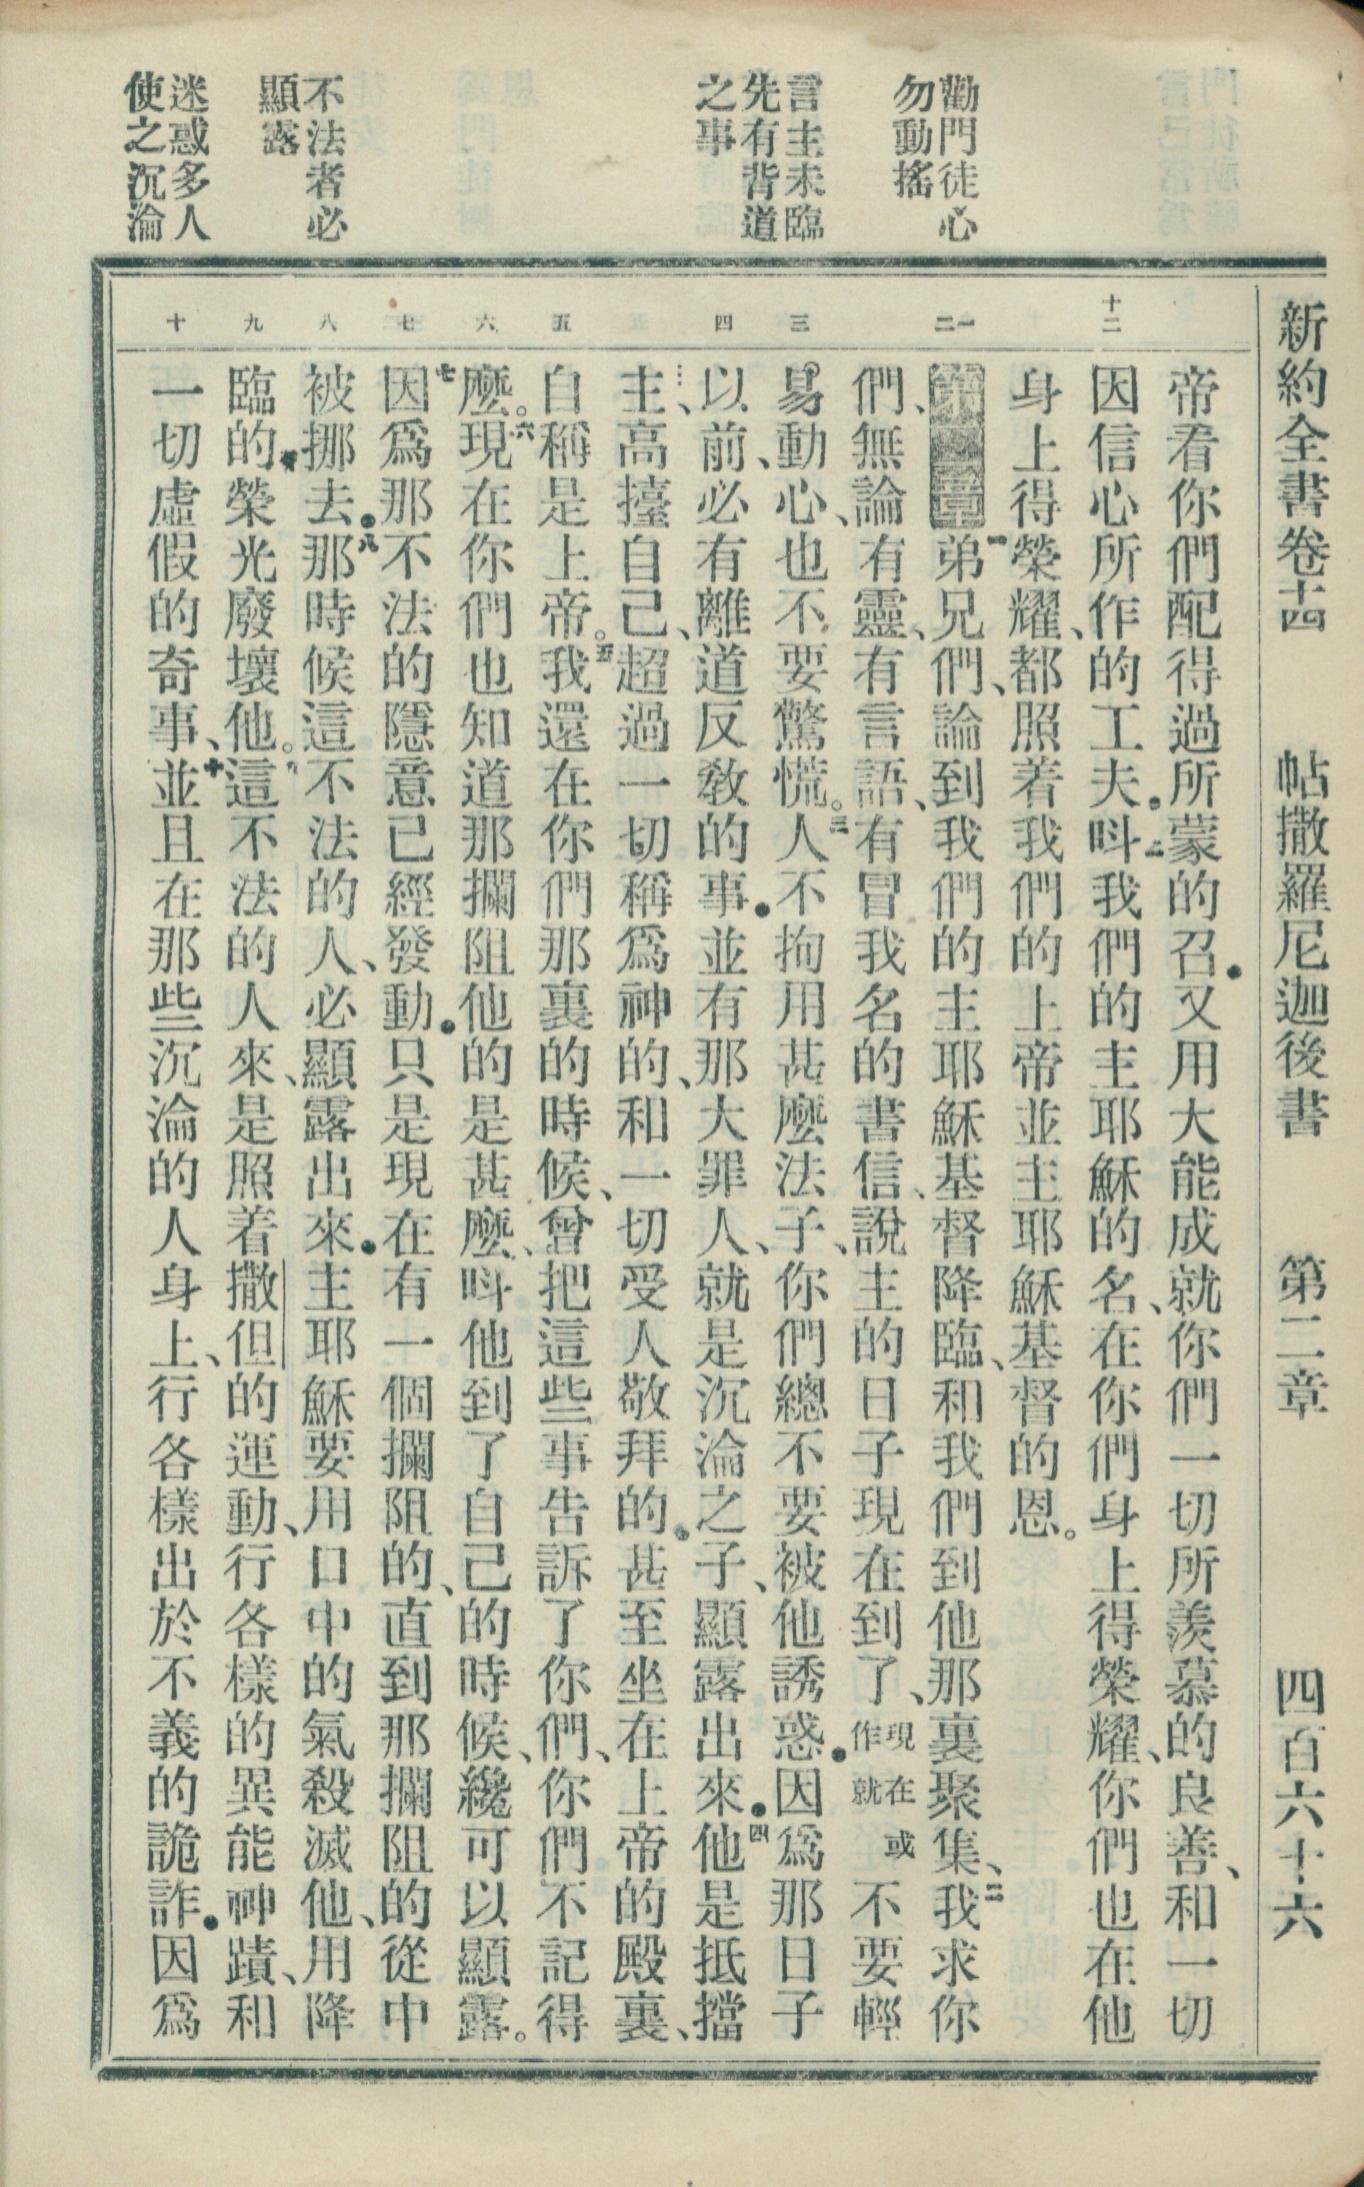 新約全書卷十四　帖撒羅尼迦後書　第二章　四百六十六
勸門徒心
勿動搖
言主未臨
先有背道
之事
不法者必
顯露
迷惑多人
使之沉淪
十二
一
二
三
四
五
六
七
八
九
十
帝看你們配得過所蒙的召．又用大能成就你們一切所羨慕的良善、和一切
因信心所作的工夫．十二呌我們的主耶穌的名、在你們身上得榮耀、你們也在他
身上得榮耀、都照着我們的上帝並主耶穌基督的恩。
第二章　一弟兄們、論到我們的主耶穌基督降臨、和我們到他那裏聚集、二我求你
們、無論有靈、有言語、有冒我名的書信、說主的日子現在到了、現在或作就不要輕
易動心、也不要驚慌。三人不拘用甚麼法子、你們總不要被他誘惑．因爲那日子
以前、必有離道反教的事．並有那大罪人、就是沉淪之子、顯露出來．四他是抵擋
主、高擡自己、超過一切稱爲神的、和一切受人敬拜的．甚至坐在上帝的殿裏、
自稱是上帝。五我還在你們那裏的時候、曾把這些事告訴了你們、你們不記得
麼。六現在你們也知道那攔阻他的是甚麼、呌他到了自己的時候、纔可以顯露。
七因爲那不法的隱意已經發動．只是現在有一個攔阻的、直到那攔阻的從中
被挪去．八那時候這不法的人、必顯露出來．主耶穌要用口中的氣殺滅他、用降
臨的榮光廢壞他。九這不法的人來、是照着撒但的運動、行各樣的異能神蹟、和
一切虛假的奇事、十並且在那些沉淪的人身上、行各樣出於不義的詭詐．因爲